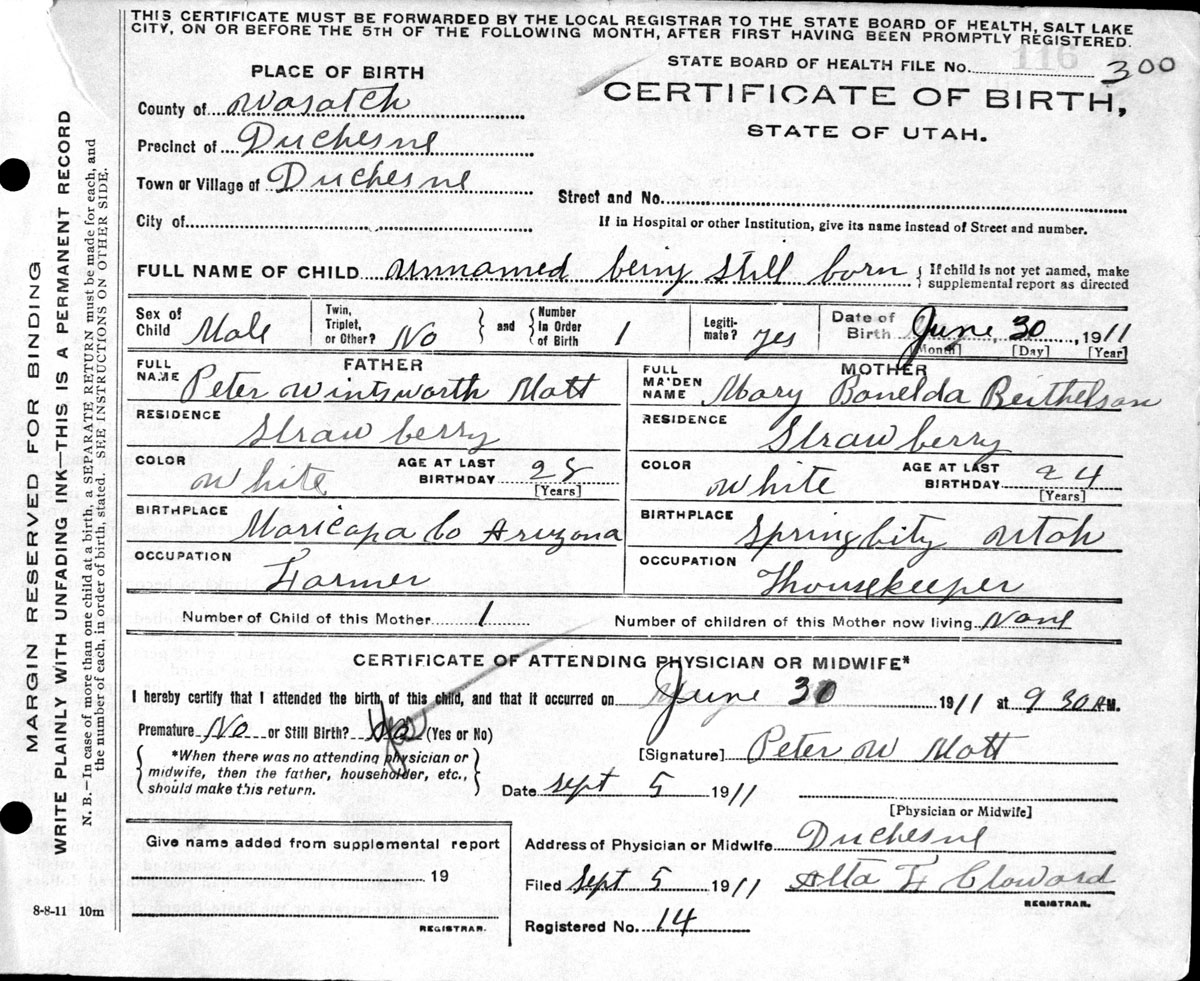 THIS CERTIFICATE MUST BE FORWARDED BY THE LOCAL REGISTRAR TO THE STATE BOARD OF HEALTH, SALT LAKE
CITY, ON OR BEFORE THE 5TH OF THE FOLLOWING MONTH, AFTER FIRST HAVING BEEN PROMPTLY REGISTERED.
116
STATE BOARD OF HEALTH FILE No. 300
CERTIFICATE OF BIRTH,
STATE OF UTAH.
PLACE OF BIRTH
County of Wasatch
Precinct of Duchesne
Town or Village of Duchesne
Street and No.
City of
If in Hospital or other Institution, give its name instead of Street and number.
FULL NAME OF CHILD unnamed being still born { If child is not yet named, make
supplemental report as directed
Sex of Child Male
Twin, Triplet, or Other? No
and
Number In Order of Birth 1
Legiti- mate? yes
Date of Birth June 30, 1911
[Month] [Day] [Year]
FATHER
FULL NAME Peter Wintsworth Mott
RESIDENCE Strawberry
COLOR White AGE AT LAST BIRTHDAY 28 [Years]
BIRTHPLACE Maricapa Co Arizona
OCCUPATION Farmer
MOTHER
FULL MA'DEN NAME Mary Bonelda Berthelson
RESIDENCE Strawberry
COLOR White AGE AT LAST BIRTHDAY 24 [Years]
BIRTHPLACE Spring City Utah
OCCUPATION Housekeeper
Number of Child of this Mother 1 Number of children of this Mother now living None
CERTIFICATE OF ATTENDING PHYSICIAN OR MIDWIFE*
I hereby certify that I attended the birth of this child, and that it occurred on June 30 1911 at 9 30 A M.
Premature No or Still Birth? Yes (Yes or No)
[Signature] Peter W Mott
*When there was no attending physician or
midwife, then the father, householder, etc.,
should make this return.
Date Sept 5 1911
[Physician or Midwife]
Give name added from supplemental report
19
REGISTRAR.
Address of Physician or Midwife Duchesne
Filed Sept 5 1911 Alta F Cloward
REGISTRAR.
Registered No. 14
8-8-11 10m
MARGIN RESERVED FOR BINDING
WRITE PLAINLY WITH UNFADING INK—THIS IS A PERMANENT RECORD
N. B.—In case of more than one child at a birth, a SEPARATE RETURN must be made for each, and
the number of each, in order of birth, stated. SEE INSTRUCTIONS ON OTHER SIDE.